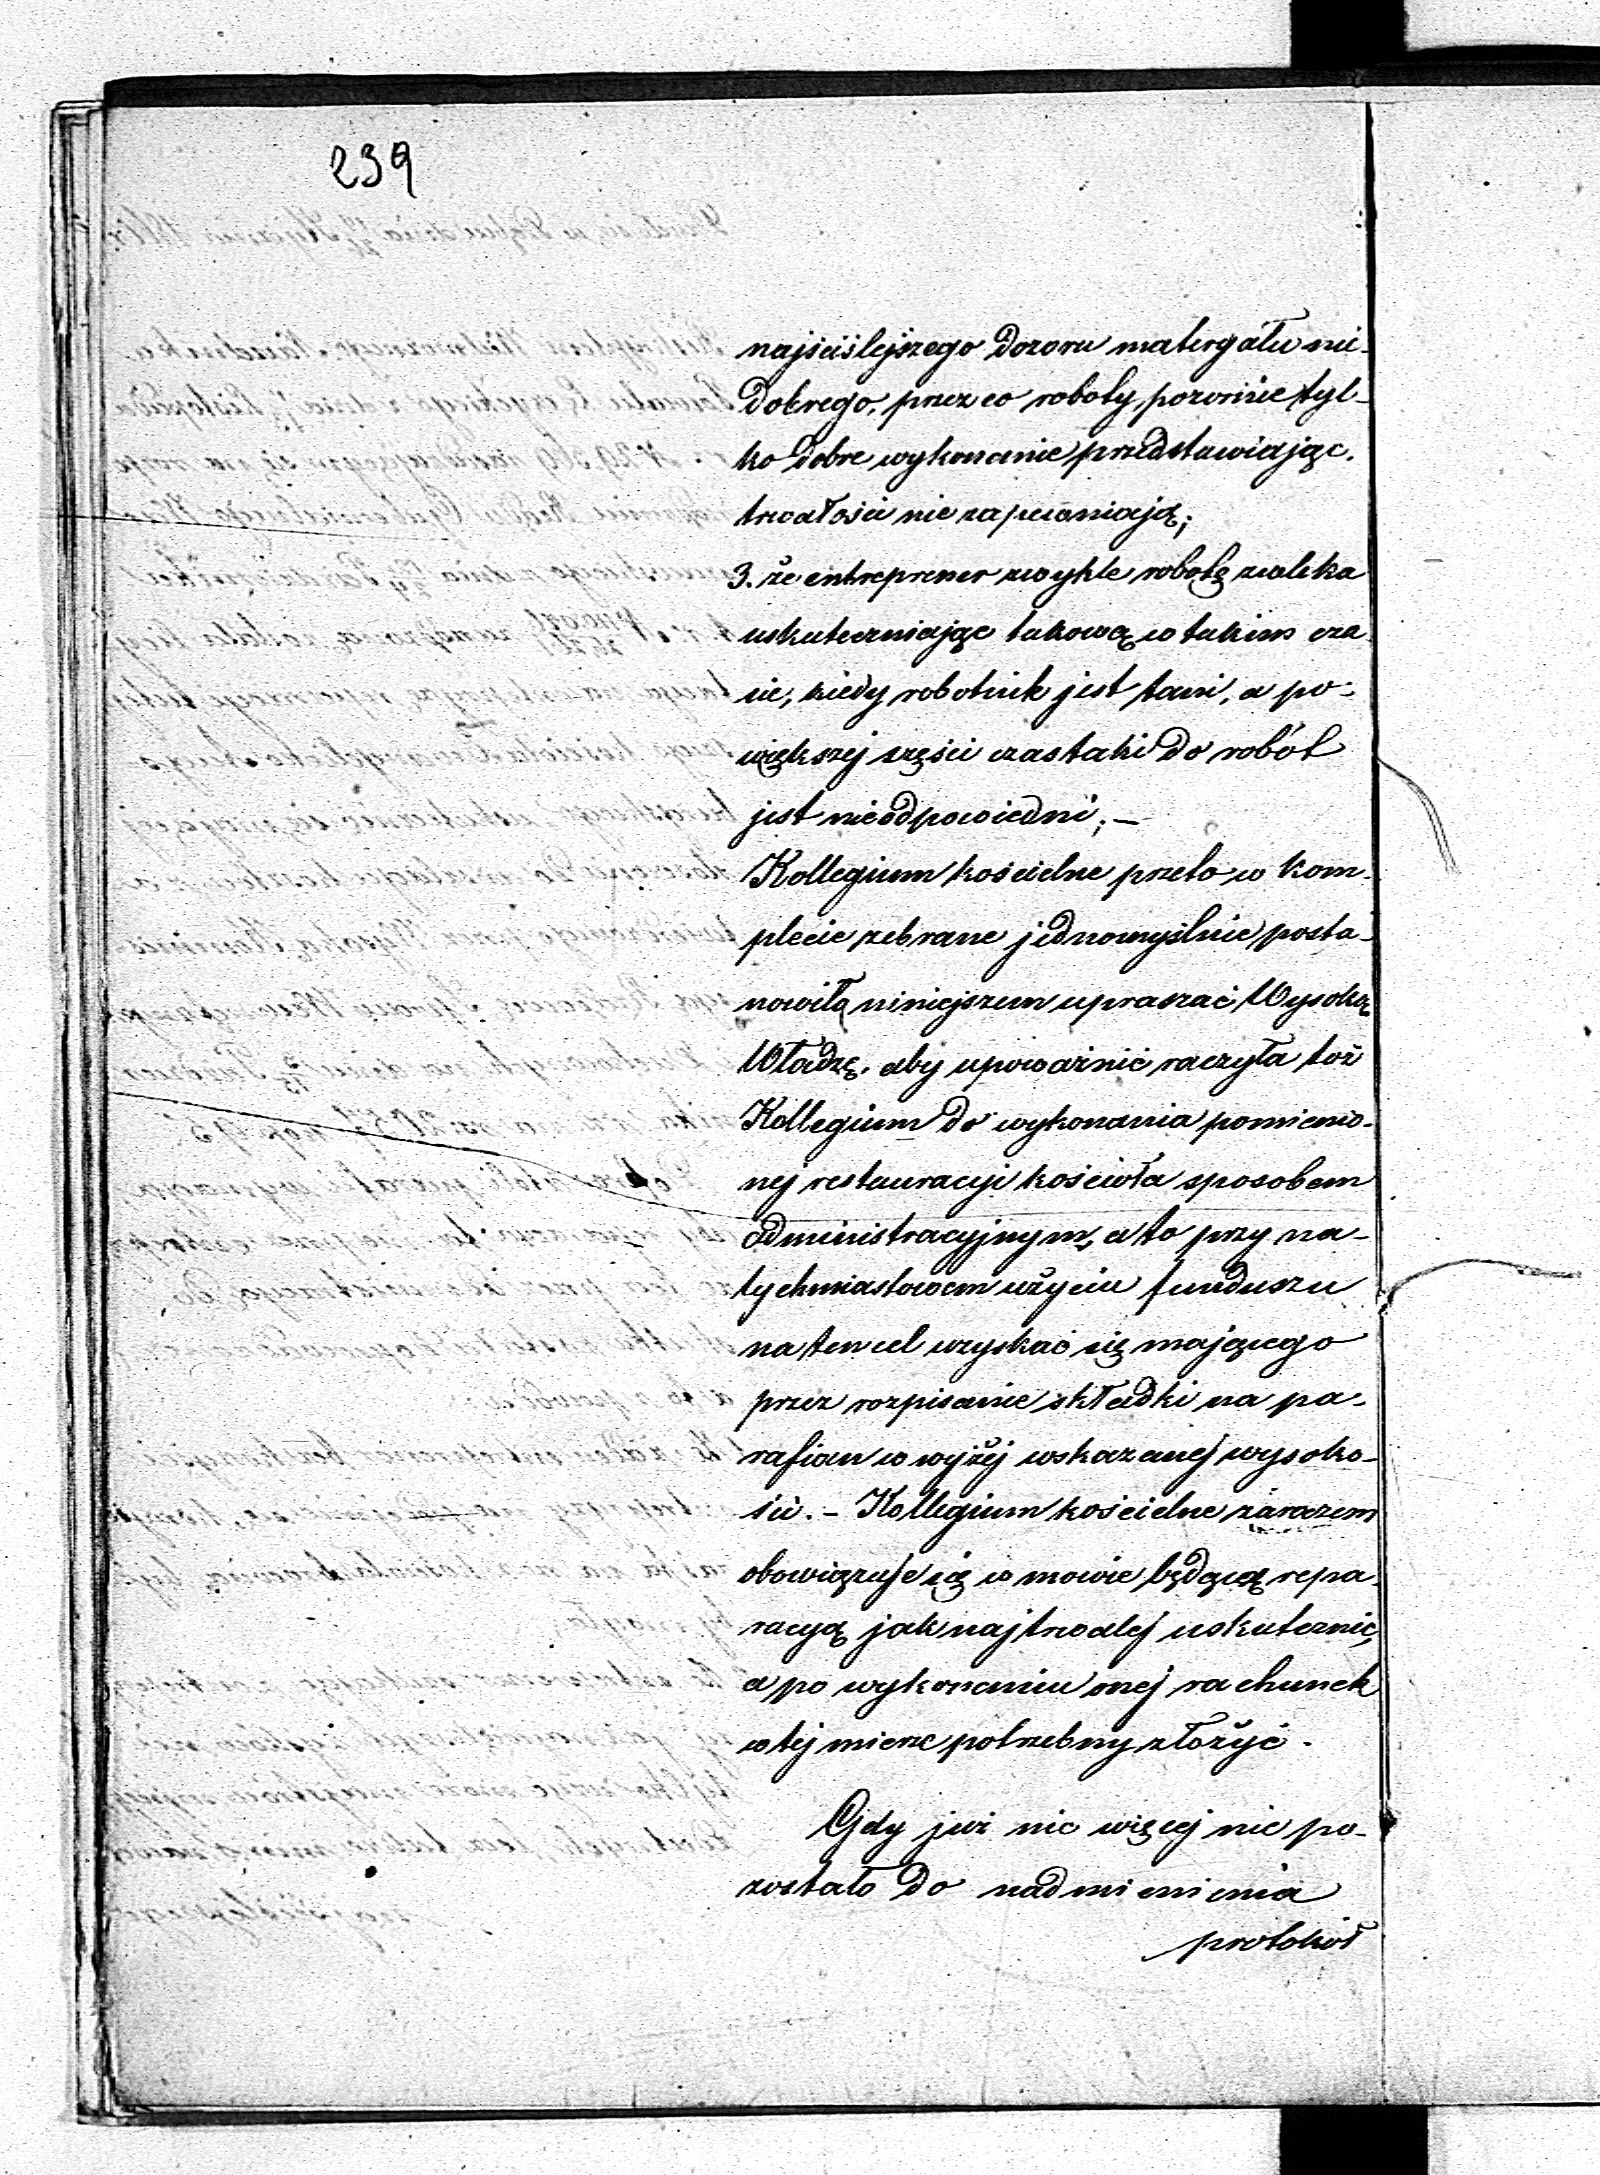 239
najściślejszego dozoru materyału nie-
dobrego, przez co roboty pozornie tyl-
ko dobre wykonanie przedstawiając,
trwałości nie zapewniają;
3. że entreprener zwykle robotę zwleka
uskuteczniając takową w takim cza-
sie, kiedy robotnik jest tani, a po-
większej części czas taki do robót
jest nieodpowiedni; —
Kollegium kościelne przeto w kom-
plecie zebrane jednomyślnie posta-
nowiło niniejszem upraszać Wysoką
Władzę, aby upoważnić raczyła toż
Kollegium do wykonania pomienio-
nej restauracyi kościoła sposobem
administracyjnym, a to przy na-
tychmiastowem użyciu funduszu
na ten cel uzyskać się mającego
przez rozpisanie składki na pa-
rafian w wyżej wskazanej wysoko-
ści. – Kollegium kościelne zarazem
obowiązuje się w mowie będącą repa-
racyą jak najtrwalej uskutecznić,
a po wykonaniu onej rachunek
w tej mierze potrzebny złożyć.
Gdy już nic więcej nie po-
zostało do nadmienienia
protokół